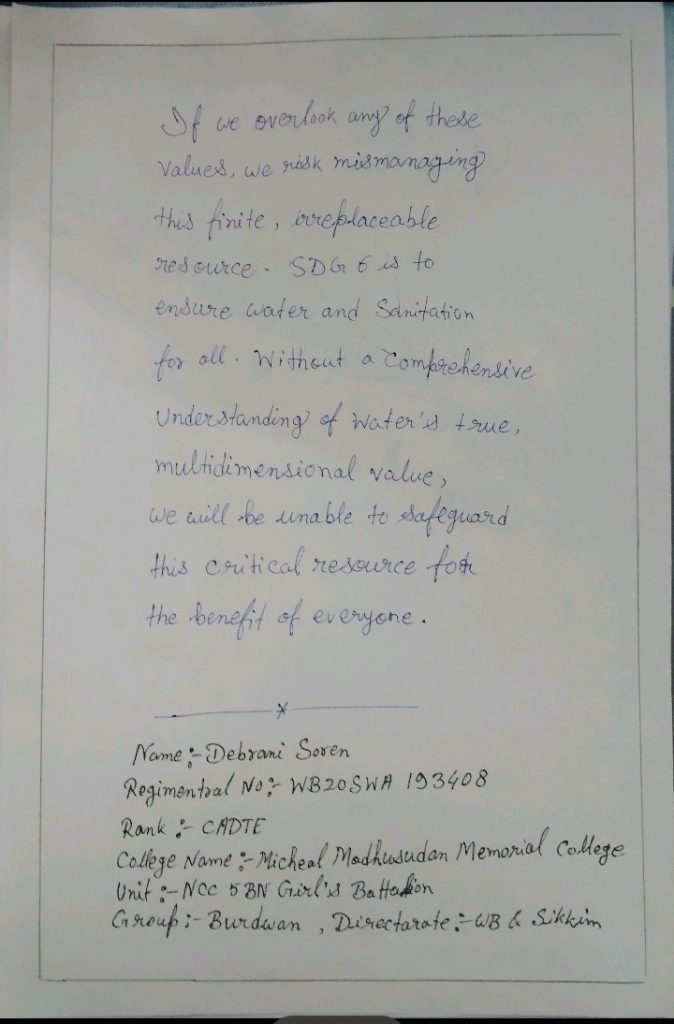 If we overlook any of these
values, we risk mismanaging
this finite, irreplaceable
resource. SDG 6 is to
ensure water and Sanitation
for all. Without a Comprehensive
Understanding of Water's true,
multidimensional value,
we will be unable to safeguard
this critical resource for
the benefit of everyone.
x
Name :- Debrani Soren
Regimentral No :- WB20SWA 193408
Rank :- CADTE
College Name :- Micheal Madhusudan Memorial College
Unit :- NCC 5 BN Girl's Battalion
Group :- Burdwan , Directarate :- WB & Sikkim